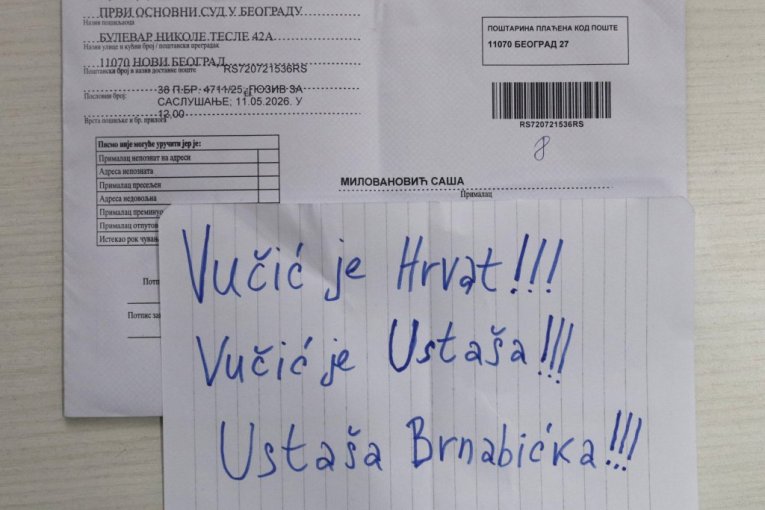 ПРВИ ОСНОВНИ СУД У БЕОГРАДУ
Назив пошиљаоца
БУЛЕВАР НИКОЛЕ ТЕСЛЕ 42А
Назив улице и кућни број / поштански преградак
11070 НОВИ БЕОГРАД
Поштански број и назив доставне поште RS720721536RS
Пословни број: 38 П.БР. 4711/25, ПОЗИВ ЗА
САСЛУШАЊЕ; 11.05.2026. У
12,00
Врста пошиљке и бр. прилога
Писмо није могуће уручити јер је:
Прималац непознат на адреси
Адреса непозната
Прималац пресељен
Адреса недовољна
Прималац преминуо
Прималац отпутов
Истекао рок чувањ
Потп
Потпис за
ПОШТАРИНА ПЛАЋЕНА КОД ПОШТЕ
11070 БЕОГРАД 27
RS720721536RS
8
МИЛОВАНОВИЋ САША
Прималац
Vučić je Hrvat!!!
Vučić je Ustaša!!!
Ustaša Brnabićka!!!